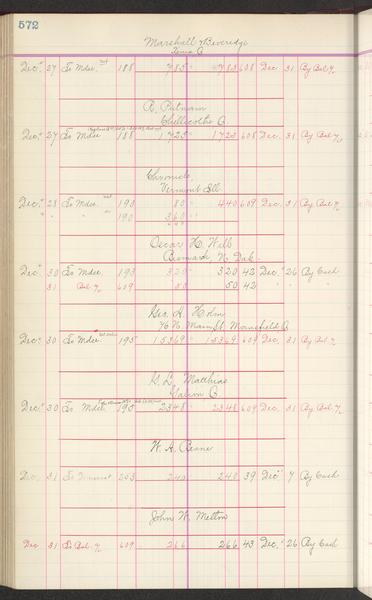 572
Marshall & Beveridge
O
Dec. 27 To Mdse. 188 785 785 608 Dec. 31 By Bal
R. Putnam
Chillicothe O
Dec. 27 To Mdse 188 1725 1725 608 Dec. 31 By Bal
Chronicle,
Vermont Ill.
Dec. 28 To Mdse. 190 80 440 609 Dec. 31 By Bal
" " " 190 360
Oscar H. Will
Bismarck, N. Dak.
Dec. 30 To Mdse 193 320 320 42 Dec. 26 By Cash
31 Bal 609 50 50 42
Geo. A. Hahn
N. Main St. Mansfield O.
Dec. 30 To Mdse. 195 15369 15369 609 Dec 31 By Bal
G. L. Matthias
Galion O.
Dec. 30 To Mdse 195 2348 2348 609 Dec. 31 By Bal
W. A. Beane
Dec. 31 To 203 248 248 39 Dec 7 By Cash
John W. Melton
Dec 31 To Bal. 609 266 266 43 Dec. 26 By Cash